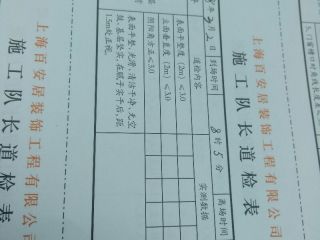 上海百安居装饰工程有限公司
施工队长道检表
月 日 到场时间 8时5分 离场时间
道检内容 实测数据
表面平整度(2m)≤3.0
立面垂直度(2m)≤3.0
阴阳角方正≤3.0
表面平整、光滑、清洁干净、无空
鼓、基层坚实、在腻子实干后，距
1.5m处正视。
上海百安居装饰工程有限公司
施工队长道检表